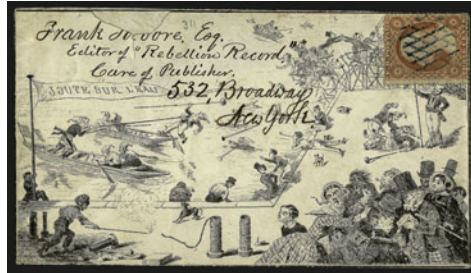 Frank Moore, Esq.
Editor of "Rebellion Record,"
Care of Publisher.
532, Broadway
New York
JOUTE SUR L'EAU